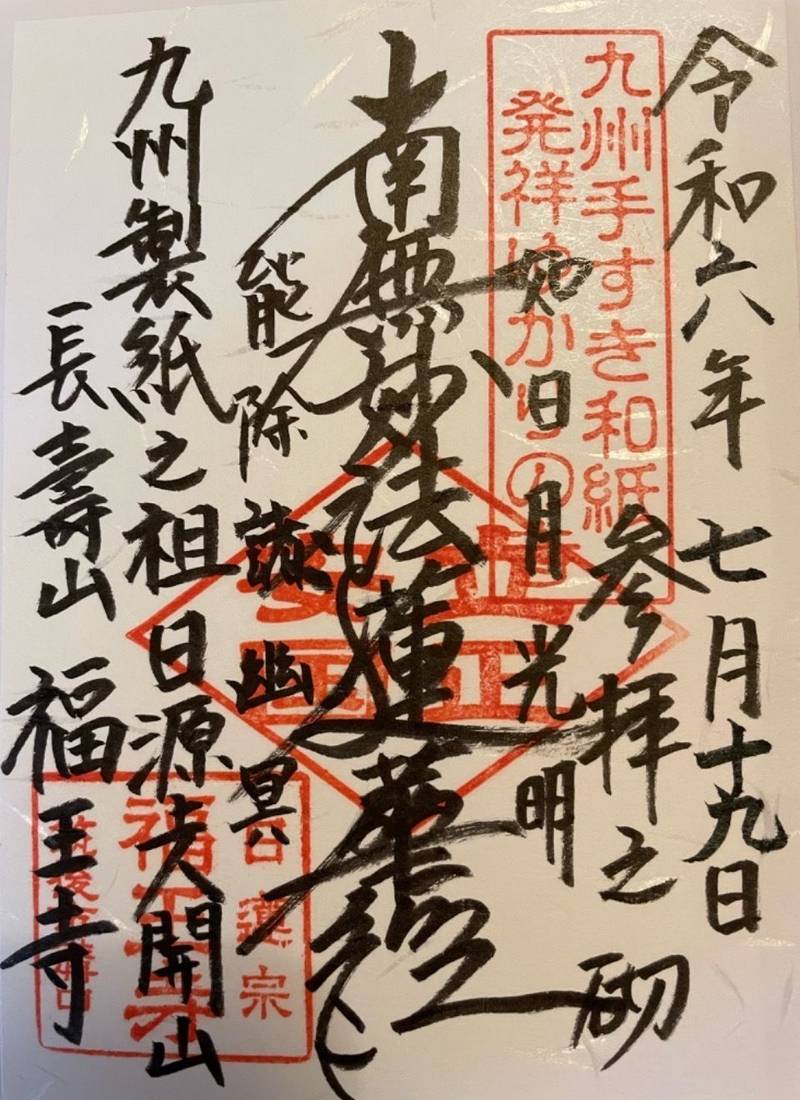 令和六年七月十九日
参拝之砌
九州手すき和紙
発祥ゆかりの
如日月光明
南無妙法蓮華経
能除諸幽冥
立正
安国
九州製紙之祖日源上人開山
長壽山福王寺
日蓮宗
福王寺